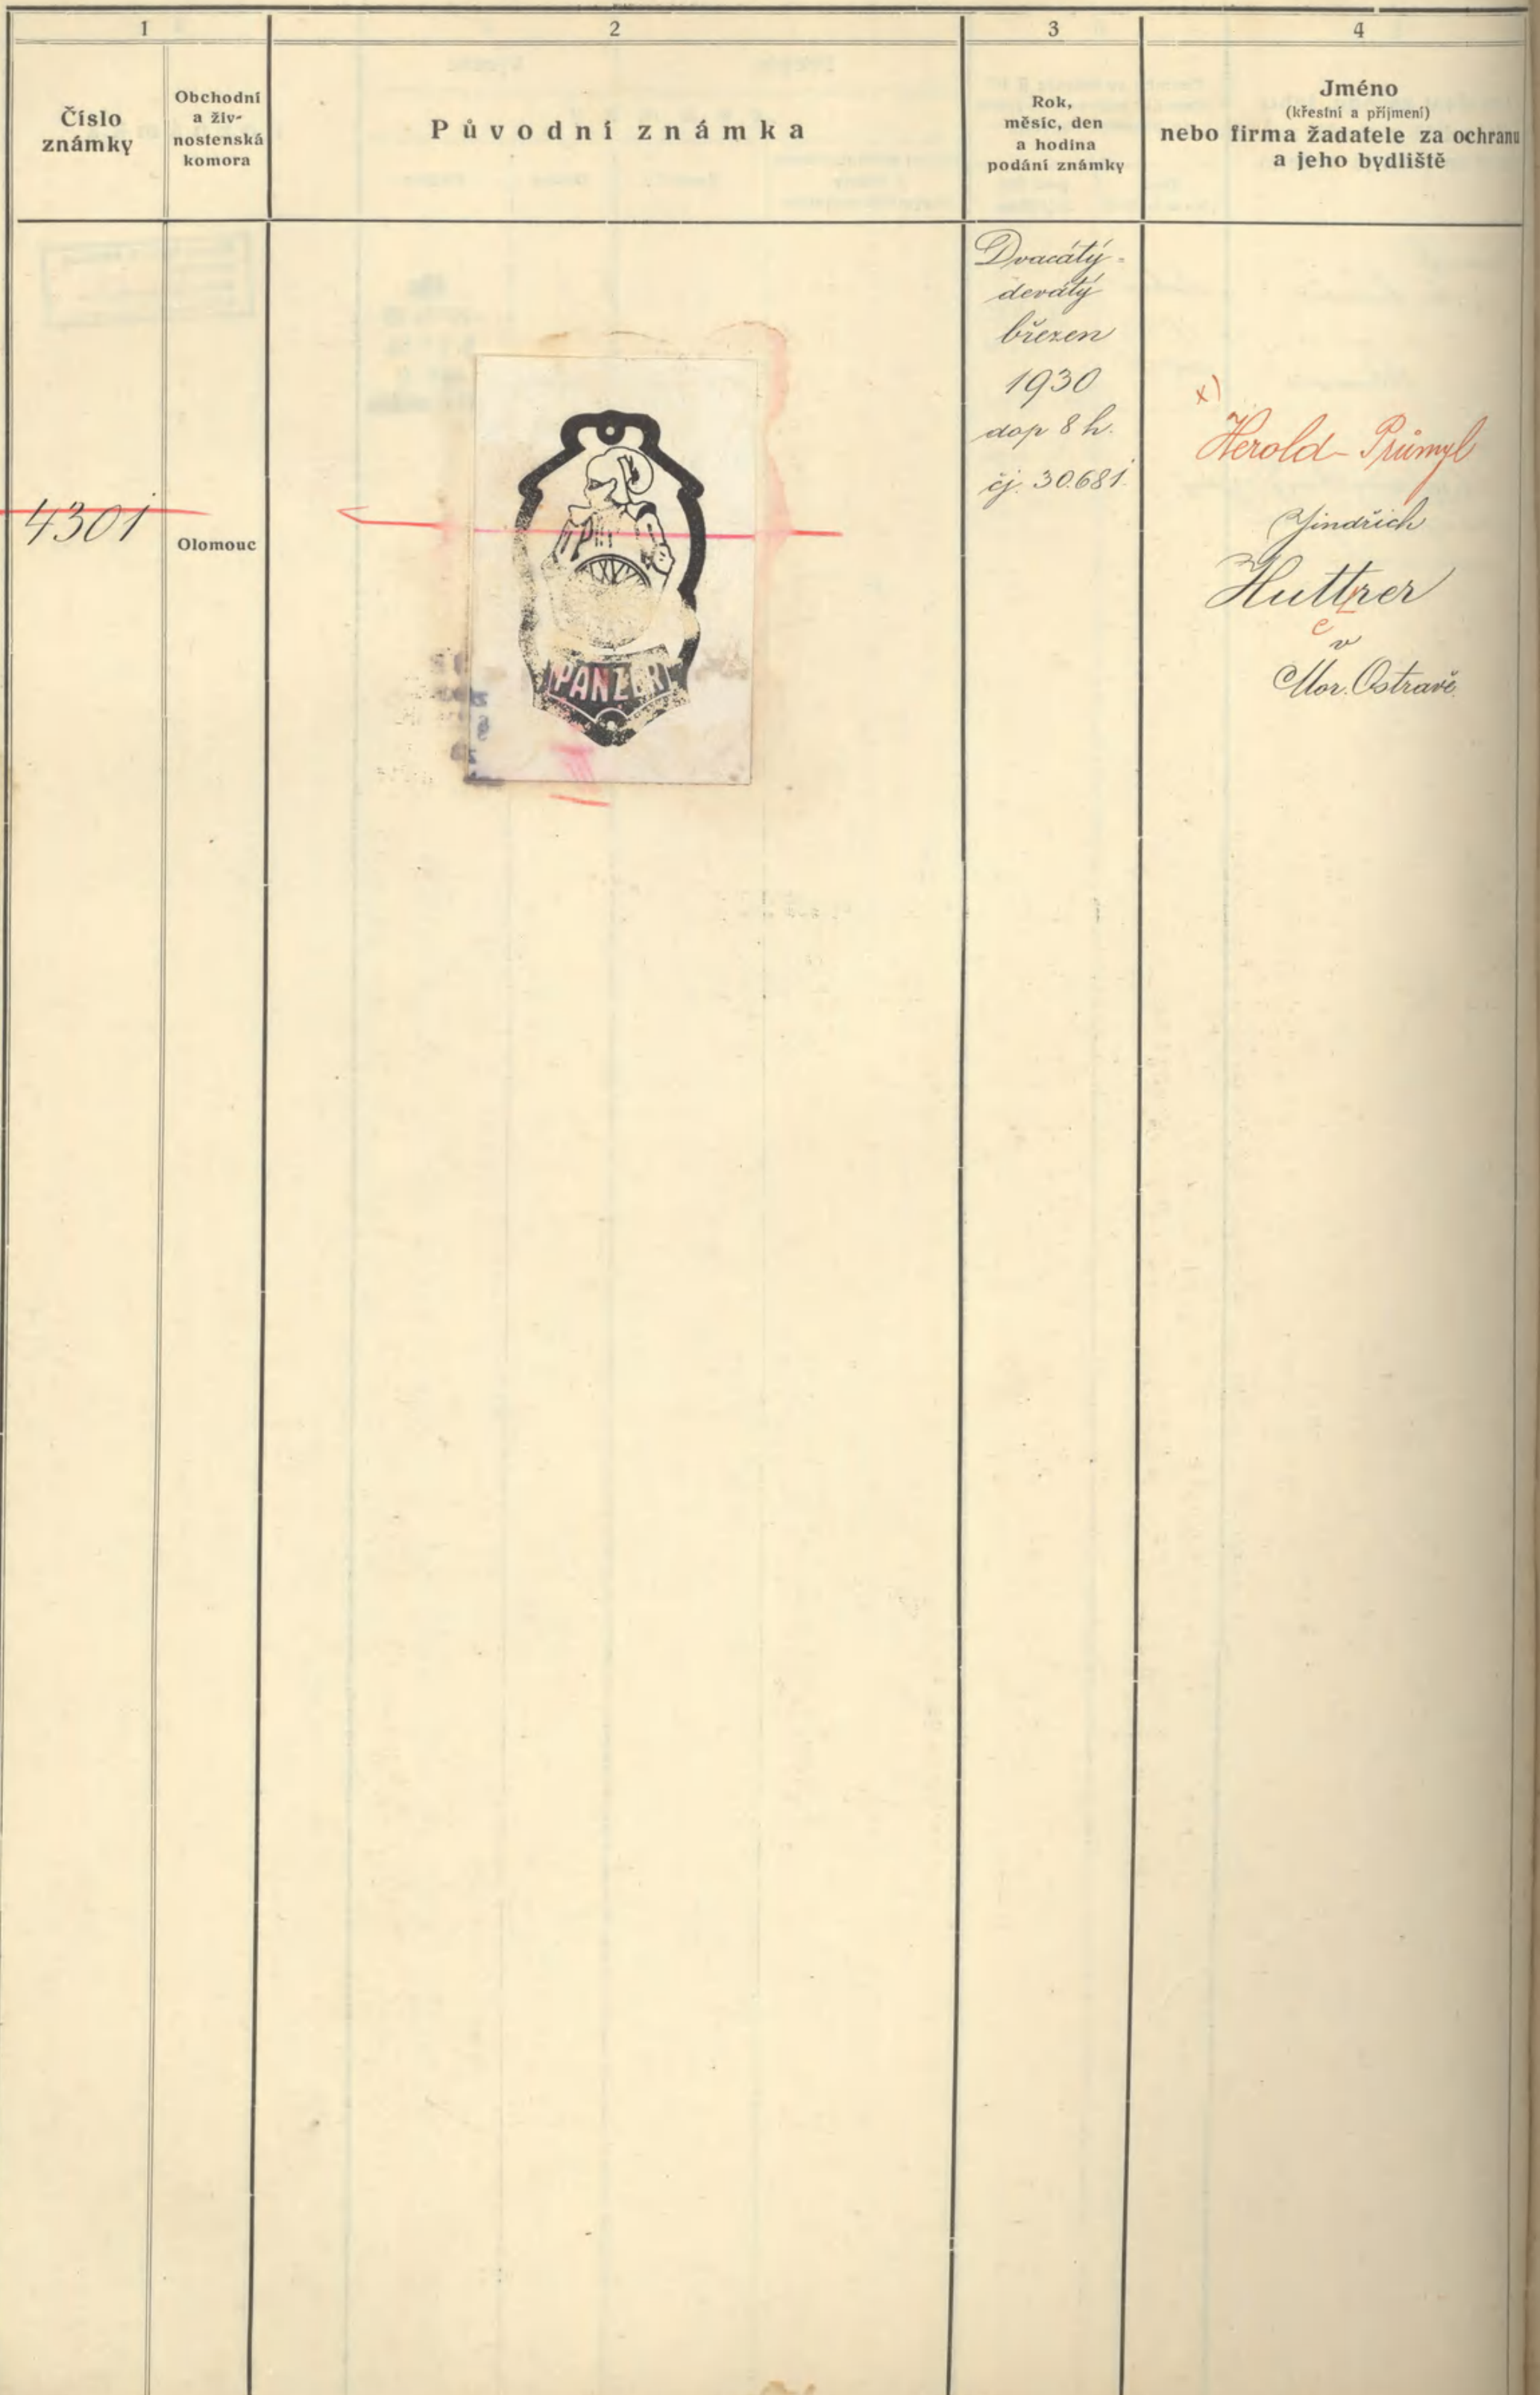 1
2
3
4
Číslo
známky
Obchodní
a živ-
nostenská
komora
Původní známka
Rok,
měsíc, den
a hodina
podání známky
Jméno
(křestní a příjmení)
nebo firma žadatele za ochranu
a jeho bydliště
4301
Olomouc
PANZER
Dvacátý-
devátý
březen
1930
dop 8 h.
čj. 30.681.
x)
Herold-Průmyl
Jindřich
Huttrer
e
v
Mor. Ostravě